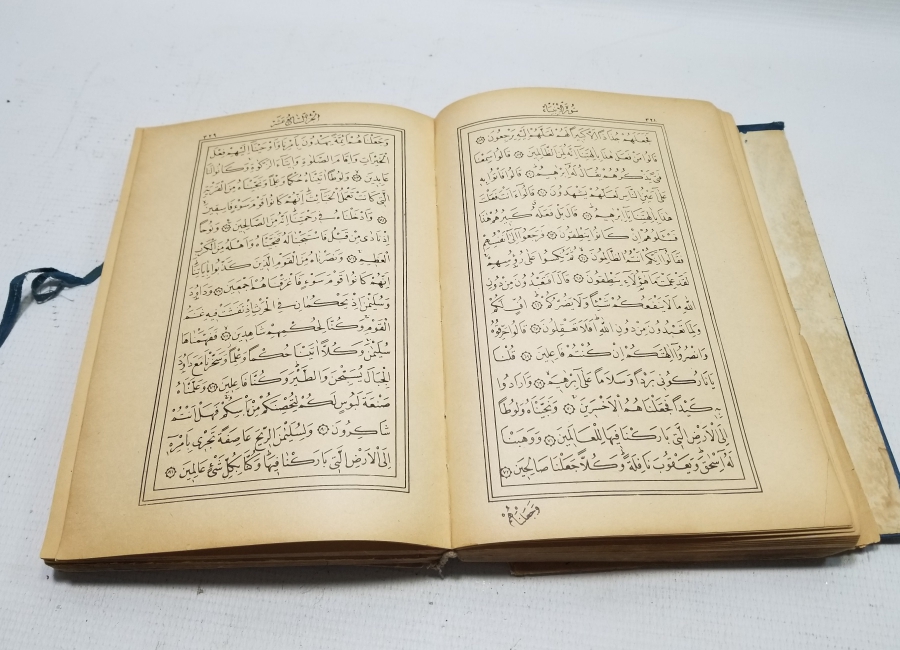 سُورَةُ الْاَنْبِيَاءِ
فَجَعَلَهُمْ جُذَاذًا اِلَّا كَبِيرًا لَهُمْ لَعَلَّهُمْ اِلَيْهِ يَرْجِعُونَ
قَالُوا مَنْ فَعَلَ هٰذَا بِاٰلِهَتِنَا اِنَّهُ لَمِنَ الظَّالِمِينَ قَالُوا سَمِعْنَا
فَتًى يَذْكُرُهُمْ يُقَالُ لَهُ اِبْرٰهِيمُ قَالُوا فَأْتُوا بِهِ
عَلٰى اَعْيُنِ النَّاسِ لَعَلَّهُمْ يَشْهَدُونَ قَالُوا ءَاَنْتَ فَعَلْتَ
هٰذَا بِاٰلِهَتِنَا يَا اِبْرٰهِيمُ قَالَ بَلْ فَعَلَهُ كَبِيرُهُمْ هٰذَا
فَسْئَلُوهُمْ اِنْ كَانُوا يَنْطِقُونَ فَرَجَعُوا اِلٰى اَنْفُسِهِمْ
فَقَالُوا اِنَّكُمْ اَنْتُمُ الظَّالِمُونَ ثُمَّ نُكِسُوا عَلٰى رُؤُسِهِمْ
لَقَدْ عَلِمْتَ مَا هٰؤُلَاءِ يَنْطِقُونَ قَالَ اَفَتَعْبُدُونَ مِنْ دُونِ
اللّٰهِ مَا لَا يَنْفَعُكُمْ شَيْئًا وَلَا يَضُرُّكُمْ اُفٍّ لَكُمْ
وَلِمَا تَعْبُدُونَ مِنْ دُونِ اللّٰهِ اَفَلَا تَعْقِلُونَ قَالُوا حَرِّقُوهُ
وَانْصُرُوا اٰلِهَتَكُمْ اِنْ كُنْتُمْ فَاعِلِينَ قُلْنَا
يَا نَارُ كُونِي بَرْدًا وَسَلَامًا عَلٰى اِبْرٰهِيمَ وَاَرَادُوا
بِهِ كَيْدًا فَجَعَلْنَاهُمُ الْاَخْسَرِينَ وَنَجَّيْنَاهُ وَلُوطًا
اِلَى الْاَرْضِ الَّتِي بَارَكْنَا فِيهَا لِلْعَالَمِينَ وَوَهَبْنَا
لَهُ اِسْحٰقَ وَيَعْقُوبَ نَافِلَةً وَكُلًّا جَعَلْنَا صَالِحِينَ
وَجَعَلْنَاهُمْ
اَلْجُزْءُ السَّابِعَ عَشَرَ
وَجَعَلْنَاهُمْ اَئِمَّةً يَهْدُونَ بِاَمْرِنَا وَاَوْحَيْنَا اِلَيْهِمْ فِعْلَ
الْخَيْرَاتِ وَاِقَامَ الصَّلٰوةِ وَاِيتَاءَ الزَّكٰوةِ وَكَانُوا لَنَا
عَابِدِينَ وَلُوطًا اٰتَيْنَاهُ حُكْمًا وَعِلْمًا وَنَجَّيْنَاهُ مِنَ الْقَرْيَةِ
الَّتِي كَانَتْ تَعْمَلُ الْخَبَائِثَ اِنَّهُمْ كَانُوا قَوْمَ سَوْءٍ فَاسِقِينَ
وَاَدْخَلْنَاهُ فِي رَحْمَتِنَا اِنَّهُ مِنَ الصَّالِحِينَ وَنُوحًا
اِذْ نَادٰى مِنْ قَبْلُ فَاسْتَجَبْنَا لَهُ فَنَجَّيْنَاهُ وَاَهْلَهُ مِنَ الْكَرْبِ
الْعَظِيمِ وَنَصَرْنَاهُ مِنَ الْقَوْمِ الَّذِينَ كَذَّبُوا بِاٰيَاتِنَا
اِنَّهُمْ كَانُوا قَوْمَ سَوْءٍ فَاَغْرَقْنَاهُمْ اَجْمَعِينَ وَدَاوُدَ
وَسُلَيْمٰنَ اِذْ يَحْكُمَانِ فِي الْحَرْثِ اِذْ نَفَشَتْ فِيهِ غَنَمُ
الْقَوْمِ وَكُنَّا لِحُكْمِهِمْ شَاهِدِينَ فَفَهَّمْنَاهَا
سُلَيْمٰنَ وَكُلًّا اٰتَيْنَا حُكْمًا وَعِلْمًا وَسَخَّرْنَا مَعَ دَاوُدَ
الْجِبَالَ يُسَبِّحْنَ وَالطَّيْرَ وَكُنَّا فَاعِلِينَ وَعَلَّمْنَاهُ
صَنْعَةَ لَبُوسٍ لَكُمْ لِتُحْصِنَكُمْ مِنْ بَأْسِكُمْ فَهَلْ اَنْتُمْ
شَاكِرُونَ وَلِسُلَيْمٰنَ الرِّيحَ عَاصِفَةً تَجْرِي بِاَمْرِهِ
اِلَى الْاَرْضِ الَّتِي بَارَكْنَا فِيهَا وَكُنَّا بِكُلِّ شَيْءٍ عَالِمِينَ